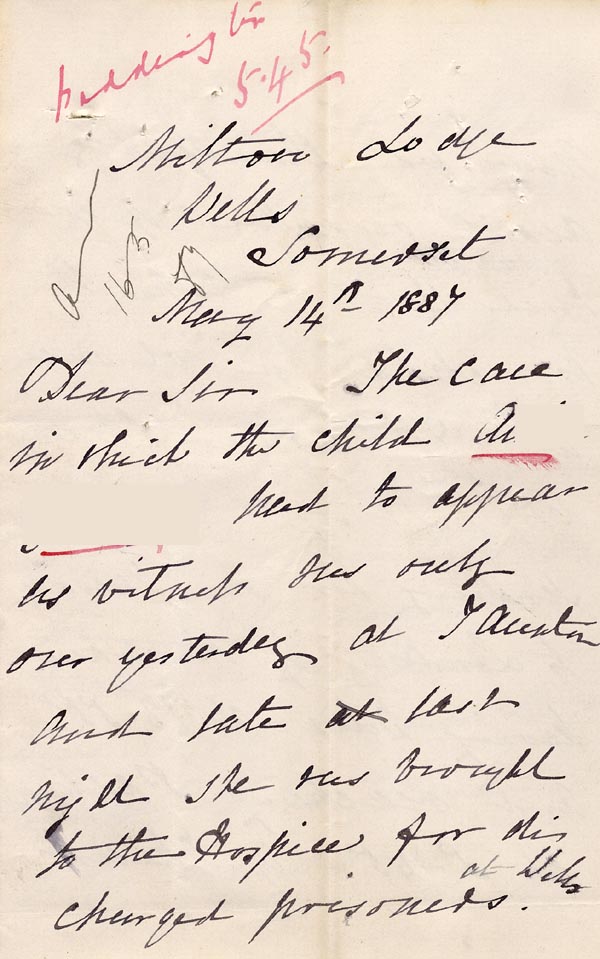 Paddington
5.45.
Milton Lodge
Wells
Somerset
16/5
May 14th 1887
Dear Sir The case
in which the child
had to appear
as witness was only
over yesterday at Taunton
and late at last
night she was brought
to the Hospice for dis
at Wells
charged prisoners.